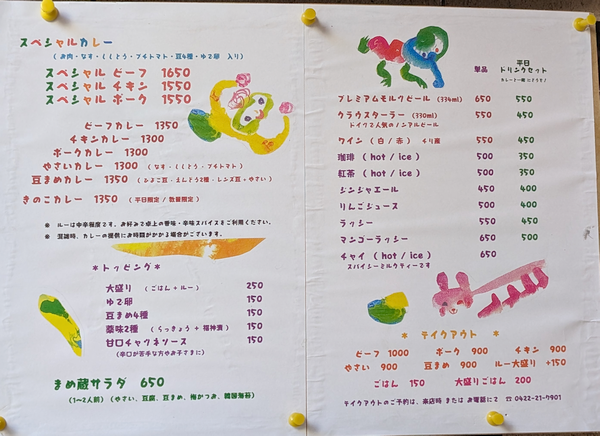 スペシャルカレー
（お肉・なす・ししとう・プチトマト・豆4種・ゆで卵 入り）
スペシャル ビーフ 1650
スペシャル チキン 1550
スペシャル ポーク 1550
ビーフカレー 1350
チキンカレー 1300
ポークカレー 1300
やさいカレー 1300 （なす・ししとう・プチトマト）
豆まめカレー 1350 （ひよこ豆・えんどう2種・レンズ豆＋やさい）
きのこカレー 1350 （平日限定 / 数量限定）
※ ルーは中辛程度です。お好みで卓上の香味・辛味スパイスをご利用ください。
※ 混雑時、カレーの提供にお時間がかかる場合がございます。
＊トッピング＊
大盛り （ごはん＋ルー） 250
ゆで卵 150
豆まめ4種 150
薬味2種 （らっきょう＋福神漬） 150
甘口チャツネソース 150
（辛口が苦手な方やお子さまに）
まめ蔵サラダ 650
（1〜2人前）（やさい、豆腐、豆まめ、梅かつお、韓国海苔）
単品 平日
ドリンクセット
カレーと一緒にどうぞ！
プレミアムモルツビール （334ml） 650 550
クラウスターラー （330ml） 550 450
ドイツで人気のノンアルビール
ワイン （白 / 赤） チリ産 550 450
珈琲 （hot / ice） 500 350
紅茶 （hot / ice） 500 350
ジンジャエール 450 400
りんごジュース 500 400
ラッシー 550 450
マンゴーラッシー 650 500
チャイ （hot / ice） 650
スパイシーミルクティーです
＊ テイクアウト ＊
ビーフ 1000 ポーク 900 チキン 900
やさい 900 豆まめ 900 ルー大盛り +150
ごはん 150 大盛りごはん 200
テイクアウトのご予約は、来店時 または お電話にて ☎ 0422-21-7901